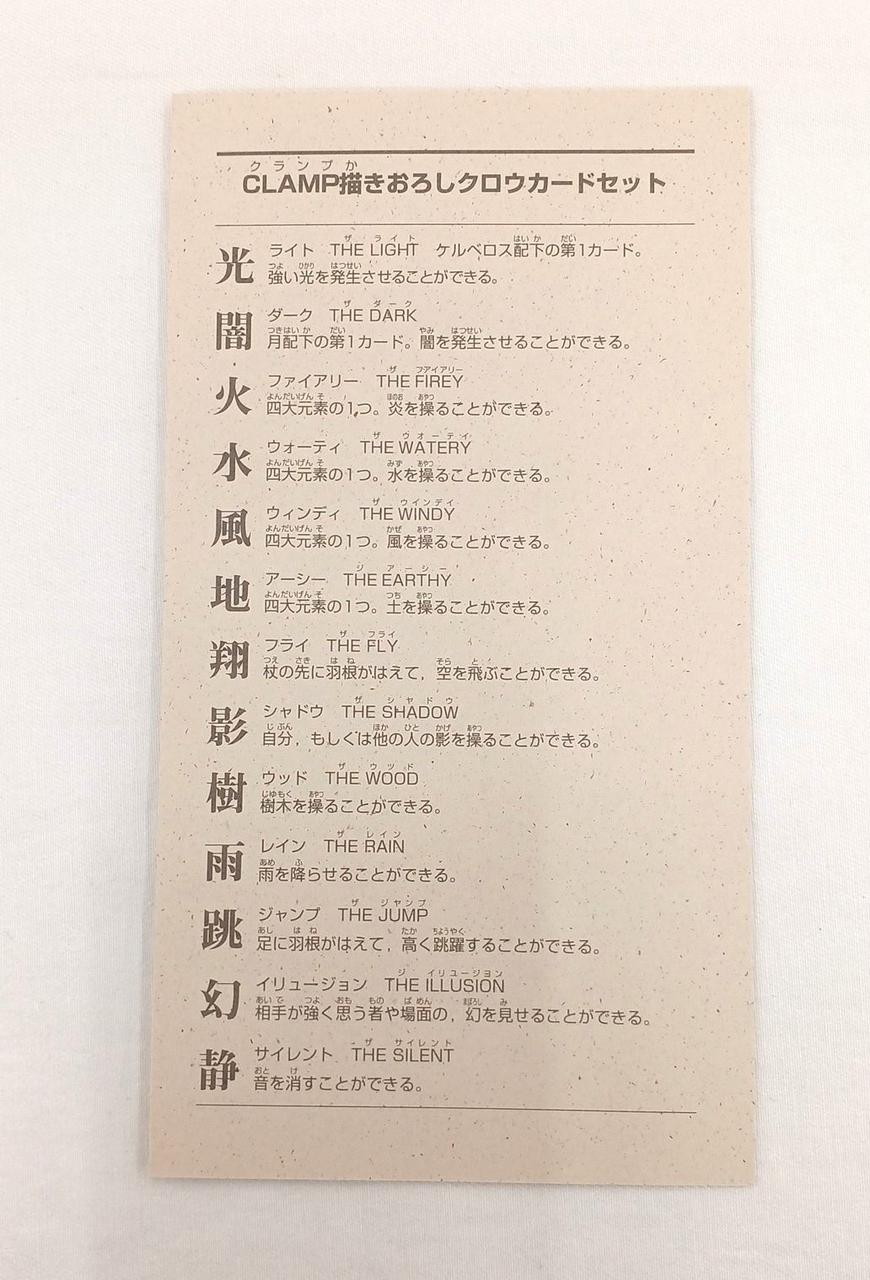 CLAMP描きおろしクロウカードセット
光 ライト THE LIGHT ケルベロス配下の第1カード。
強い光を発生させることができる。
闇 ダーク THE DARK
月配下の第1カード。闇を発生させることができる。
火 ファイアリー THE FIREY
四大元素の1つ。炎を操ることができる。
水 ウォーティ THE WATERY
四大元素の1つ。水を操ることができる。
風 ウィンディ THE WINDY
四大元素の1つ。風を操ることができる。
地 アーシー THE EARTHY
四大元素の1つ。土を操ることができる。
翔 フライ THE FLY
杖の先に羽根がはえて，空を飛ぶことができる。
影 シャドウ THE SHADOW
自分，もしくは他の人の影を操ることができる。
樹 ウッド THE WOOD
樹木を操ることができる。
雨 レイン THE RAIN
雨を降らせることができる。
跳 ジャンプ THE JUMP
足に羽根がはえて，高く跳躍することができる。
幻 イリュージョン THE ILLUSION
相手が強く思う者や場面の，幻を見せることができる。
静 サイレント THE SILENT
音を消すことができる。